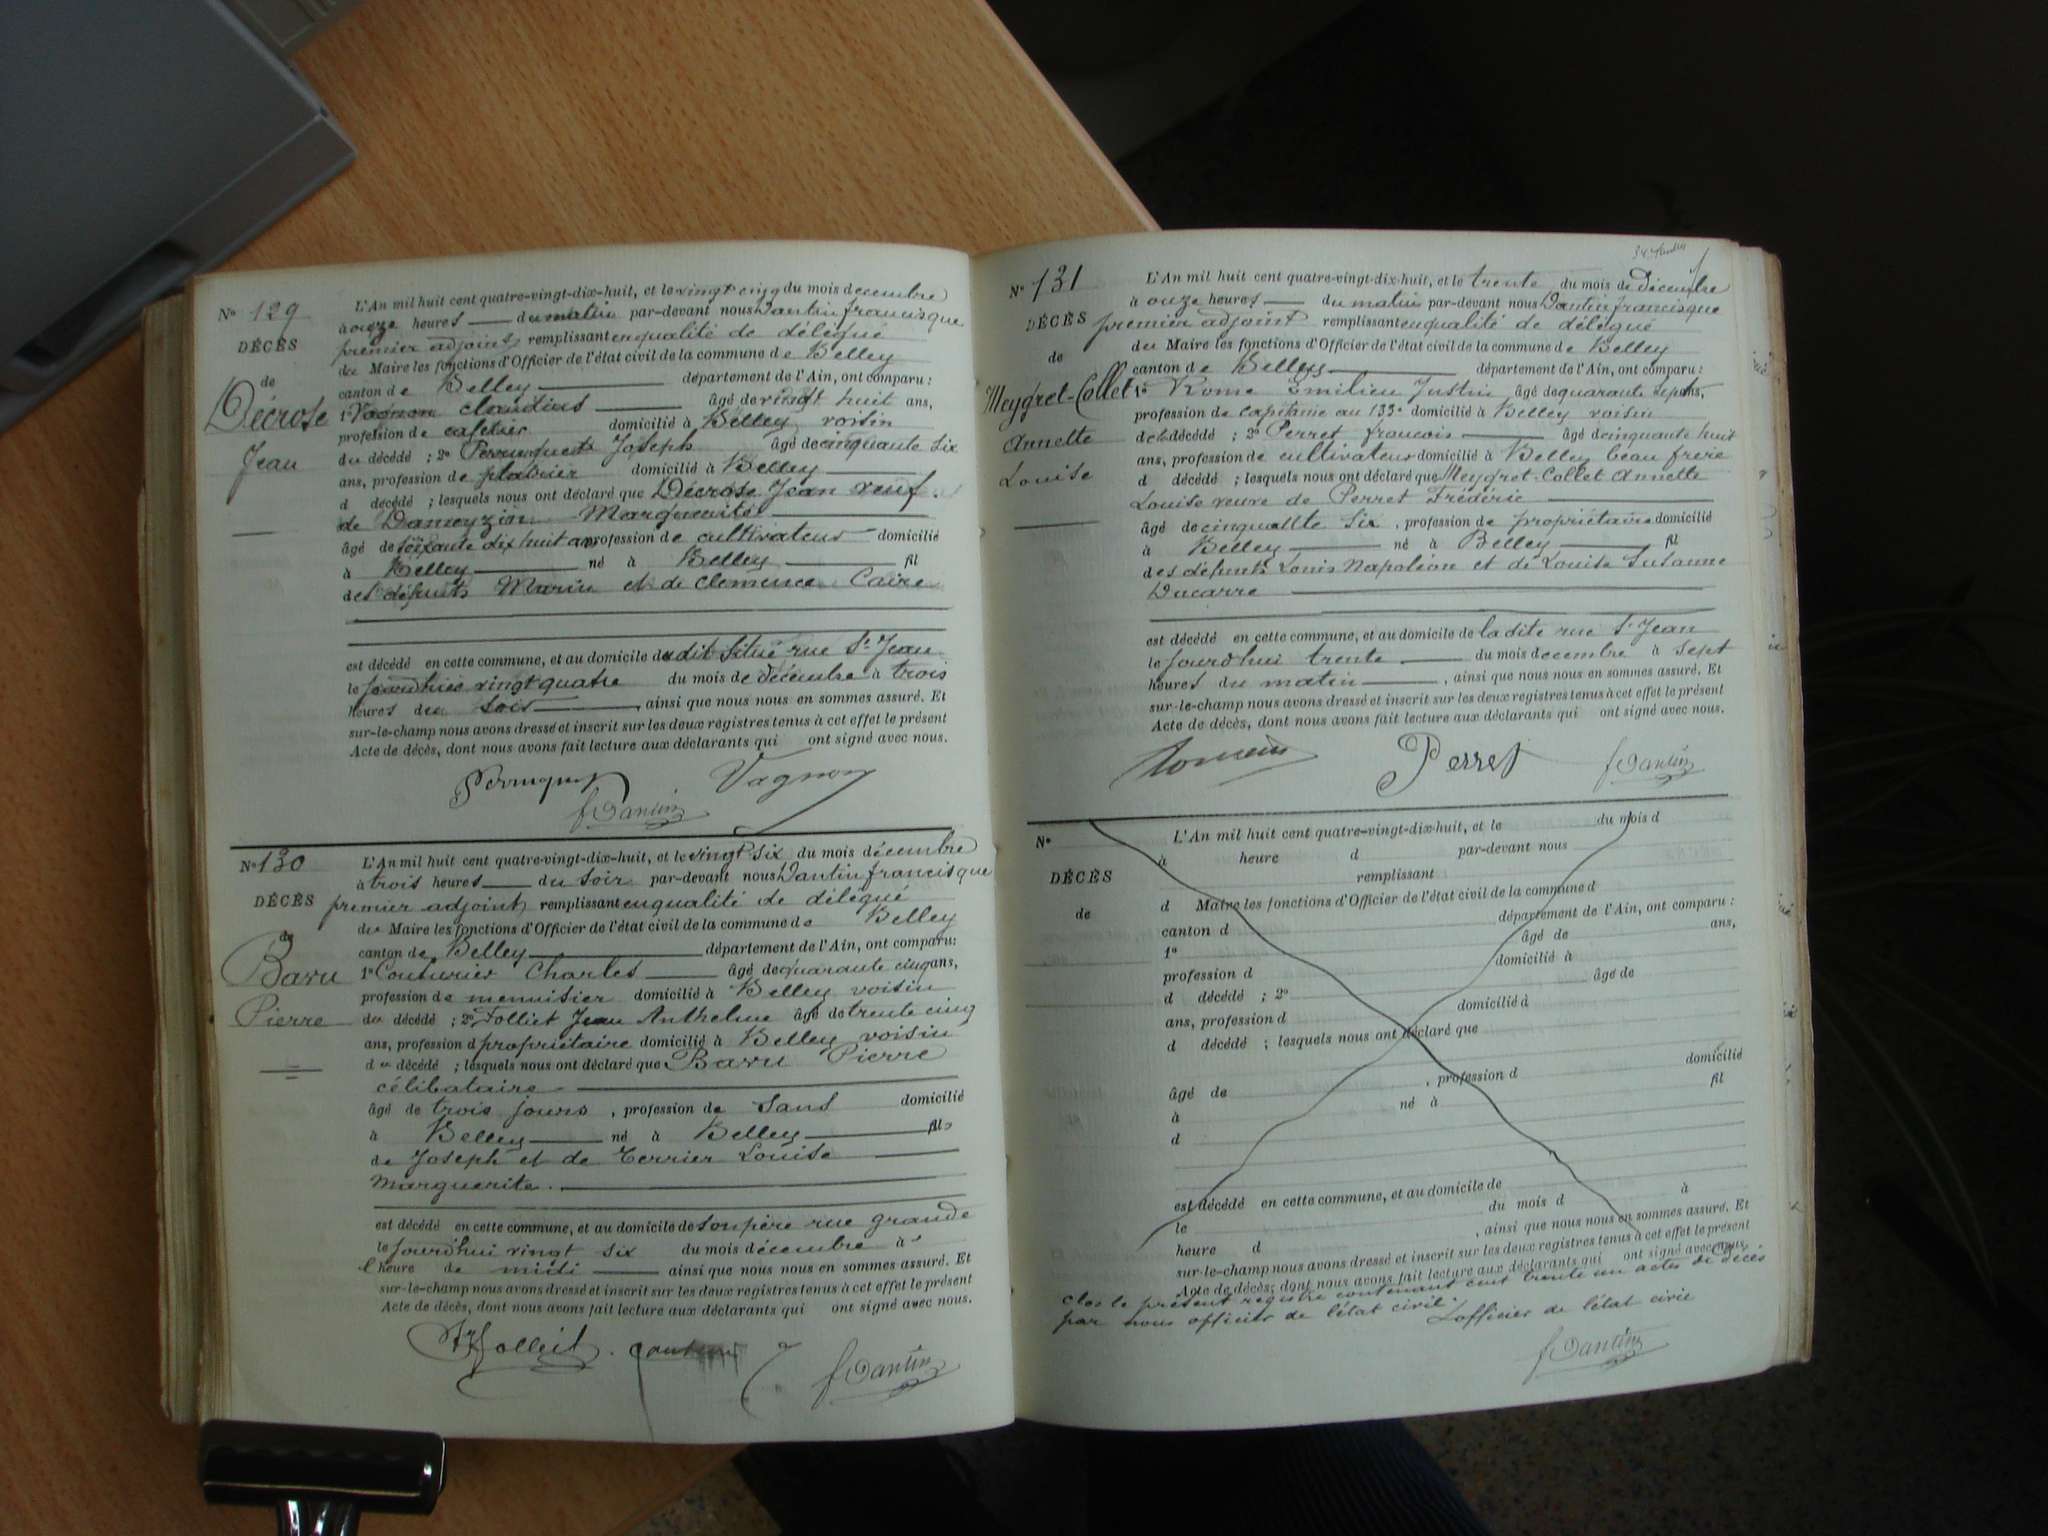 N° 129
DÉCÈS
de
Décrose
Jean
L'An mil huit cent quatre-vingt-dix-huit, et le vingt cinq du mois decembre
à onze heures du matin par-devant nous Dantin francisque
premier adjoint remplissant en qualité de délégué
du Maire les fonctions d'Officier de l'état civil de la commune de Belley
canton de Belley département de l'Ain, ont comparu :
1° Vagnon claudius âgé de vingt huit ans,
profession de cafetier domicilié à Belley voisin
du décédé ; 2° Perruquet Joseph âgé de cinquante six
ans, profession de platrier domicilié à Belley
d décédé ; lesquels nous ont déclaré que Décrose Jean veuf
de Dameyzin Marguerite
âgé de soixante dix huit ans profession de cultivateur domicilié
à Belley né à Belley fil
des défunts Marin et de clemence Caire
est décédé en cette commune, et au domicile du dit situé rue St Jean
le jourd'hier vingt quatre du mois de décembre à trois
heures du soir, ainsi que nous nous en sommes assuré. Et
sur-le-champ nous avons dressé et inscrit sur les deux registres tenus à cet effet le présent
Acte de décès, dont nous avons fait lecture aux déclarants qui ont signé avec nous.
Perruquet Vagnon
f Dantin
N° 130
DÉCÈS
de
Baru
Pierre
L'An mil huit cent quatre-vingt-dix-huit, et le vingt six du mois décembre
à trois heures du soir par-devant nous Dantin francisque
premier adjoint remplissant en qualité de délégué
du Maire les fonctions d'Officier de l'état civil de la commune de Belley
canton de Belley département de l'Ain, ont comparu :
1° Couturier Charles âgé de quarante cinq ans,
profession de menuisier domicilié à Belley voisin
du décédé ; 2° Folliet Jean Anthelme âgé de trente cinq
ans, profession d propriétaire domicilié à Belley voisin
du décédé ; lesquels nous ont déclaré que Barru Pierre
célibataire
âgé de trois jours, profession de sans domicilié
à Belley né à Belley fils
de Joseph et de Terrier Louise
Marguerite.
est décédé en cette commune, et au domicile de son père rue grande
le jourd'hui vingt six du mois décembre à
l'heure de midi ainsi que nous nous en sommes assuré. Et
sur-le-champ nous avons dressé et inscrit sur les deux registres tenus à cet effet le présent
Acte de décès, dont nous avons fait lecture aux déclarants qui ont signé avec nous.
f Dantin
N° 131
DÉCÈS
de
Meygret-Collet
Annette
Louise
L'An mil huit cent quatre-vingt-dix-huit, et le trente du mois de décembre
à onze heures du matin par-devant nous Dantin francisque
premier adjoint remplissant en qualité de délégué
du Maire les fonctions d'Officier de l'état civil de la commune de Belley
canton de Belley département de l'Ain, ont comparu :
1° Rome Emilien Justin âgé de quarante sept ans,
profession de capitaine au 133e domicilié à Belley voisin
de la décédé ; 2° Perret francois âgé de cinquante huit
ans, profession de cultivateur domicilié à Belley beau frere
d décédé ; lesquels nous ont déclaré que Meygret-Collet Annette
Louise veuve de Perret Frédéric
âgé de cinquante six, profession de propriétaire domicilié
à Belley né à Belley fil
des défunts Louis Napoléon et de Louise Susanne
Ducarre
est décédé en cette commune, et au domicile de la dite rue St Jean
le jourd'hui trente du mois decembre à sept
heures du matin, ainsi que nous nous en sommes assuré. Et
sur-le-champ nous avons dressé et inscrit sur les deux registres tenus à cet effet le présent
Acte de décès, dont nous avons fait lecture aux déclarants qui ont signé avec nous.
Perret f Dantin
N°
DÉCÈS
de
L'An mil huit cent quatre-vingt-dix-huit, et le du mois d
à heure d par-devant nous
remplissant
d Maire les fonctions d'Officier de l'état civil de la commune d
canton d département de l'Ain, ont comparu :
1° âgé de ans,
profession d domicilié à
d décédé ; 2° âgé de
ans, profession d domicilié à
d décédé ; lesquels nous ont déclaré que
âgé de , profession d domicilié
à né à fil
d
est décédé en cette commune, et au domicile de
le du mois d à
heure d , ainsi que nous nous en sommes assuré. Et
sur-le-champ nous avons dressé et inscrit sur les deux registres tenus à cet effet le présent
Acte de décès; dont nous avons fait lecture aux déclarants qui ont signé avec nous.
clos le présent registre contenant cent trente un actes de décès
par nous officier de l'état civil. L'officier de l'état civil
f Dantin